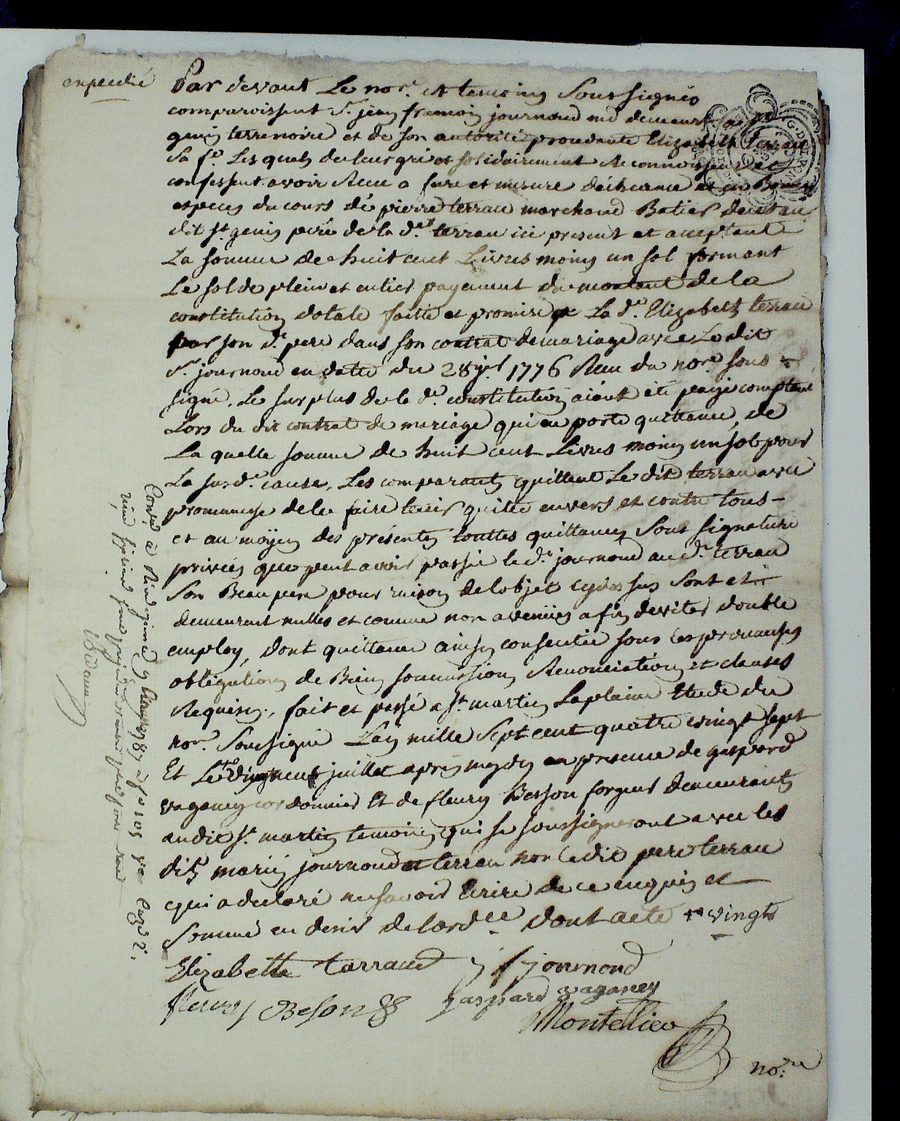 expedié
Par devant Le nore. et temoins Soussignés
comparoissent Sr. jean françois journoud md demeurant a St
genis terrenoire et de son autorité procedante Elizabeth terrau
Sa fe. Les quels de leur gré et solidairement Reconnoissent et
confessent avoir Receu a fure et mesure d'écheance et en Bonnes
especes du cours de pierre terrau marchand Batier demeurant au
dit St. genis pere de la de. terrau ici present et acceptant
La somme de huit cent Livres moins un sol formant
Le solde plein et entier payement du montant de la
constitution dotale faitte et promise a La de. Elizabeth terrau
par son d. pere dans son contrat de mariage avec Le dit
Sr. journoud en datte du 28 1776 Receu du nore. sous
signé. Le surplus de la de. constitution aiant été payé comptant
Lors du dit contrat de mariage qui en porte quittance, de
La quelle somme de huit cent Livres moins un sol pour
La susde. cause, Les comparants quittent Le dit terrau avec
promesse de le faire tenir quitte envers et contre tous
et au moyen des présentes touttes quittances Sous signature
privées que peut avoir passée le d. journoud au d. terrau
Son Beau pere pour raison de l'objet cydessus Sont et
demeurent nulles et comme non avenues afin d'eviter double
employ, dont quittance ainsy consentie sous les promesses
obligations de Biens soumissions Renonciations et clauses
Requises, fait et passé a St. martin Laplaine Etude du
nore. Soussigné L'an mille Sept cent quatre vingt sept
Et Le vingneuf juillet après mydy en presence de gaspard
vaganey cordonnier Et de fleury Besson forgeur demeurants
audit St. martin temoins qui se soussigneront avec les
dits mariés journoud et terrau non Le dit pere terrau
qui a declaré ne savoir Ecrire de ce enquis et
Sommé en denis de lordce. dont acte vingt
Elizabette tarraud j f journoud
fleury Beson gaspard vaganey
Montellier
nore
Conté a Rivedegier le 9 87 fo 105 Ro Case 2.